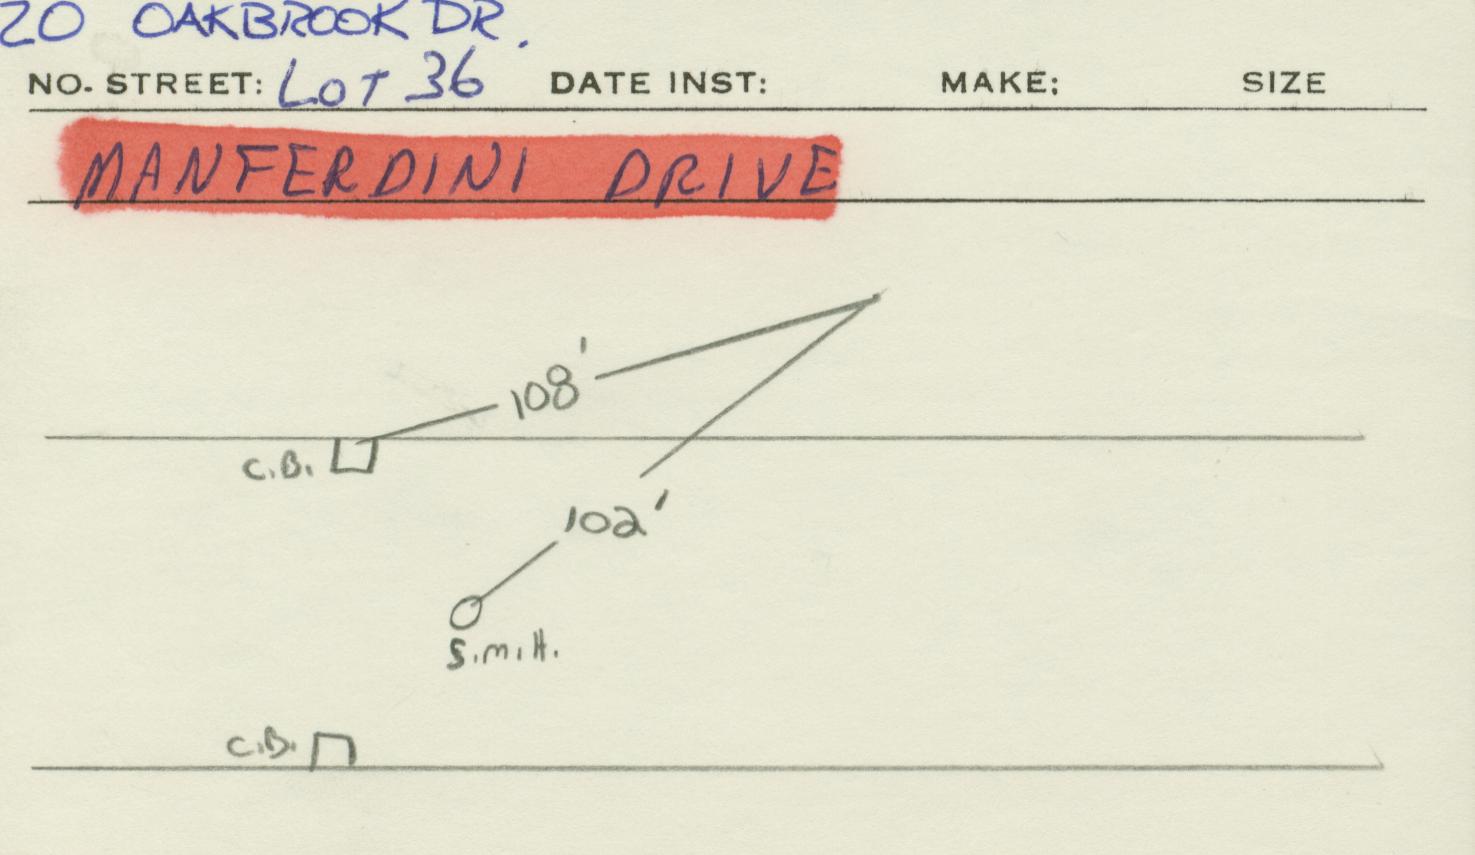 20 OAKBROOK DR.
NO. STREET: LOT 36 DATE INST: MAKE; SIZE
MANFERDINI DRIVE
108'
C.B.
102'
S.M.H.
C.B.